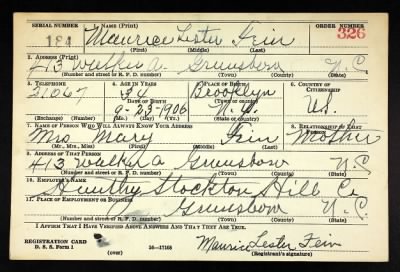 SERIAL NUMBER 1. NAME (Print) ORDER NUMBER
184 Maurice Lester Fein 326
(First) (Middle) (Last)
2. ADDRESS (Print)
413 Greensboro N.C.
(Number and street or R. F. D. number) (Town) (County) (State)
3. TELEPHONE 4. AGE IN YEARS 5. PLACE OF BIRTH 6. COUNTRY OF CITIZENSHIP
Brooklyn
DATE OF BIRTH (Town or county)
9-23-1906 N.Y. U.S.
(Exchange) (Number) (Mo.) (Day) (Yr.) (State or country)
7. NAME OF PERSON WHO WILL ALWAYS KNOW YOUR ADDRESS 8. RELATIONSHIP OF THAT PERSON
Mrs Mary Fein Mother
(Mr., Mrs., Miss) (First) (Middle) (Last)
9. ADDRESS OF THAT PERSON
413 Greensboro N.C.
(Number and street or R. F. D. number) (Town) (County) (State)
10. EMPLOYER'S NAME
Stockton Hill Co
11. PLACE OF EMPLOYMENT OR BUSINESS
Greensboro N.C.
(Number and street or R. F. D. number) (Town) (County) (State)
I AFFIRM THAT I HAVE VERIFIED ABOVE ANSWERS AND THAT THEY ARE TRUE.
REGISTRATION CARD
D. S. S. Form 1 16-17105 Maurice Lester Fein
(over) (Registrant's signature)